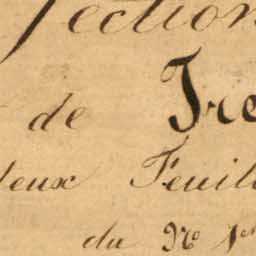 Section
de Tre
deux Feuil
du No 1er